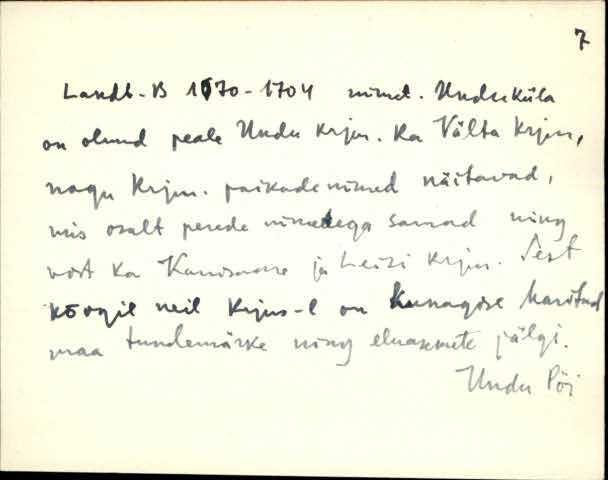 7
Landb-B 1670-1704 nimed. Unduküla
on olnud peale Undu Krjm. Ka Välta Krjm,
nagu Krjm. paikade nimed näitavad,
mis osalt perede nimedega samad ning
vist ka Karusmaa ja Leisi Krjm. Sest
kõogil neil Krjms-l on kunagise haritud
maa tundemärke ning eluasemete jälgi.
Undu Põi